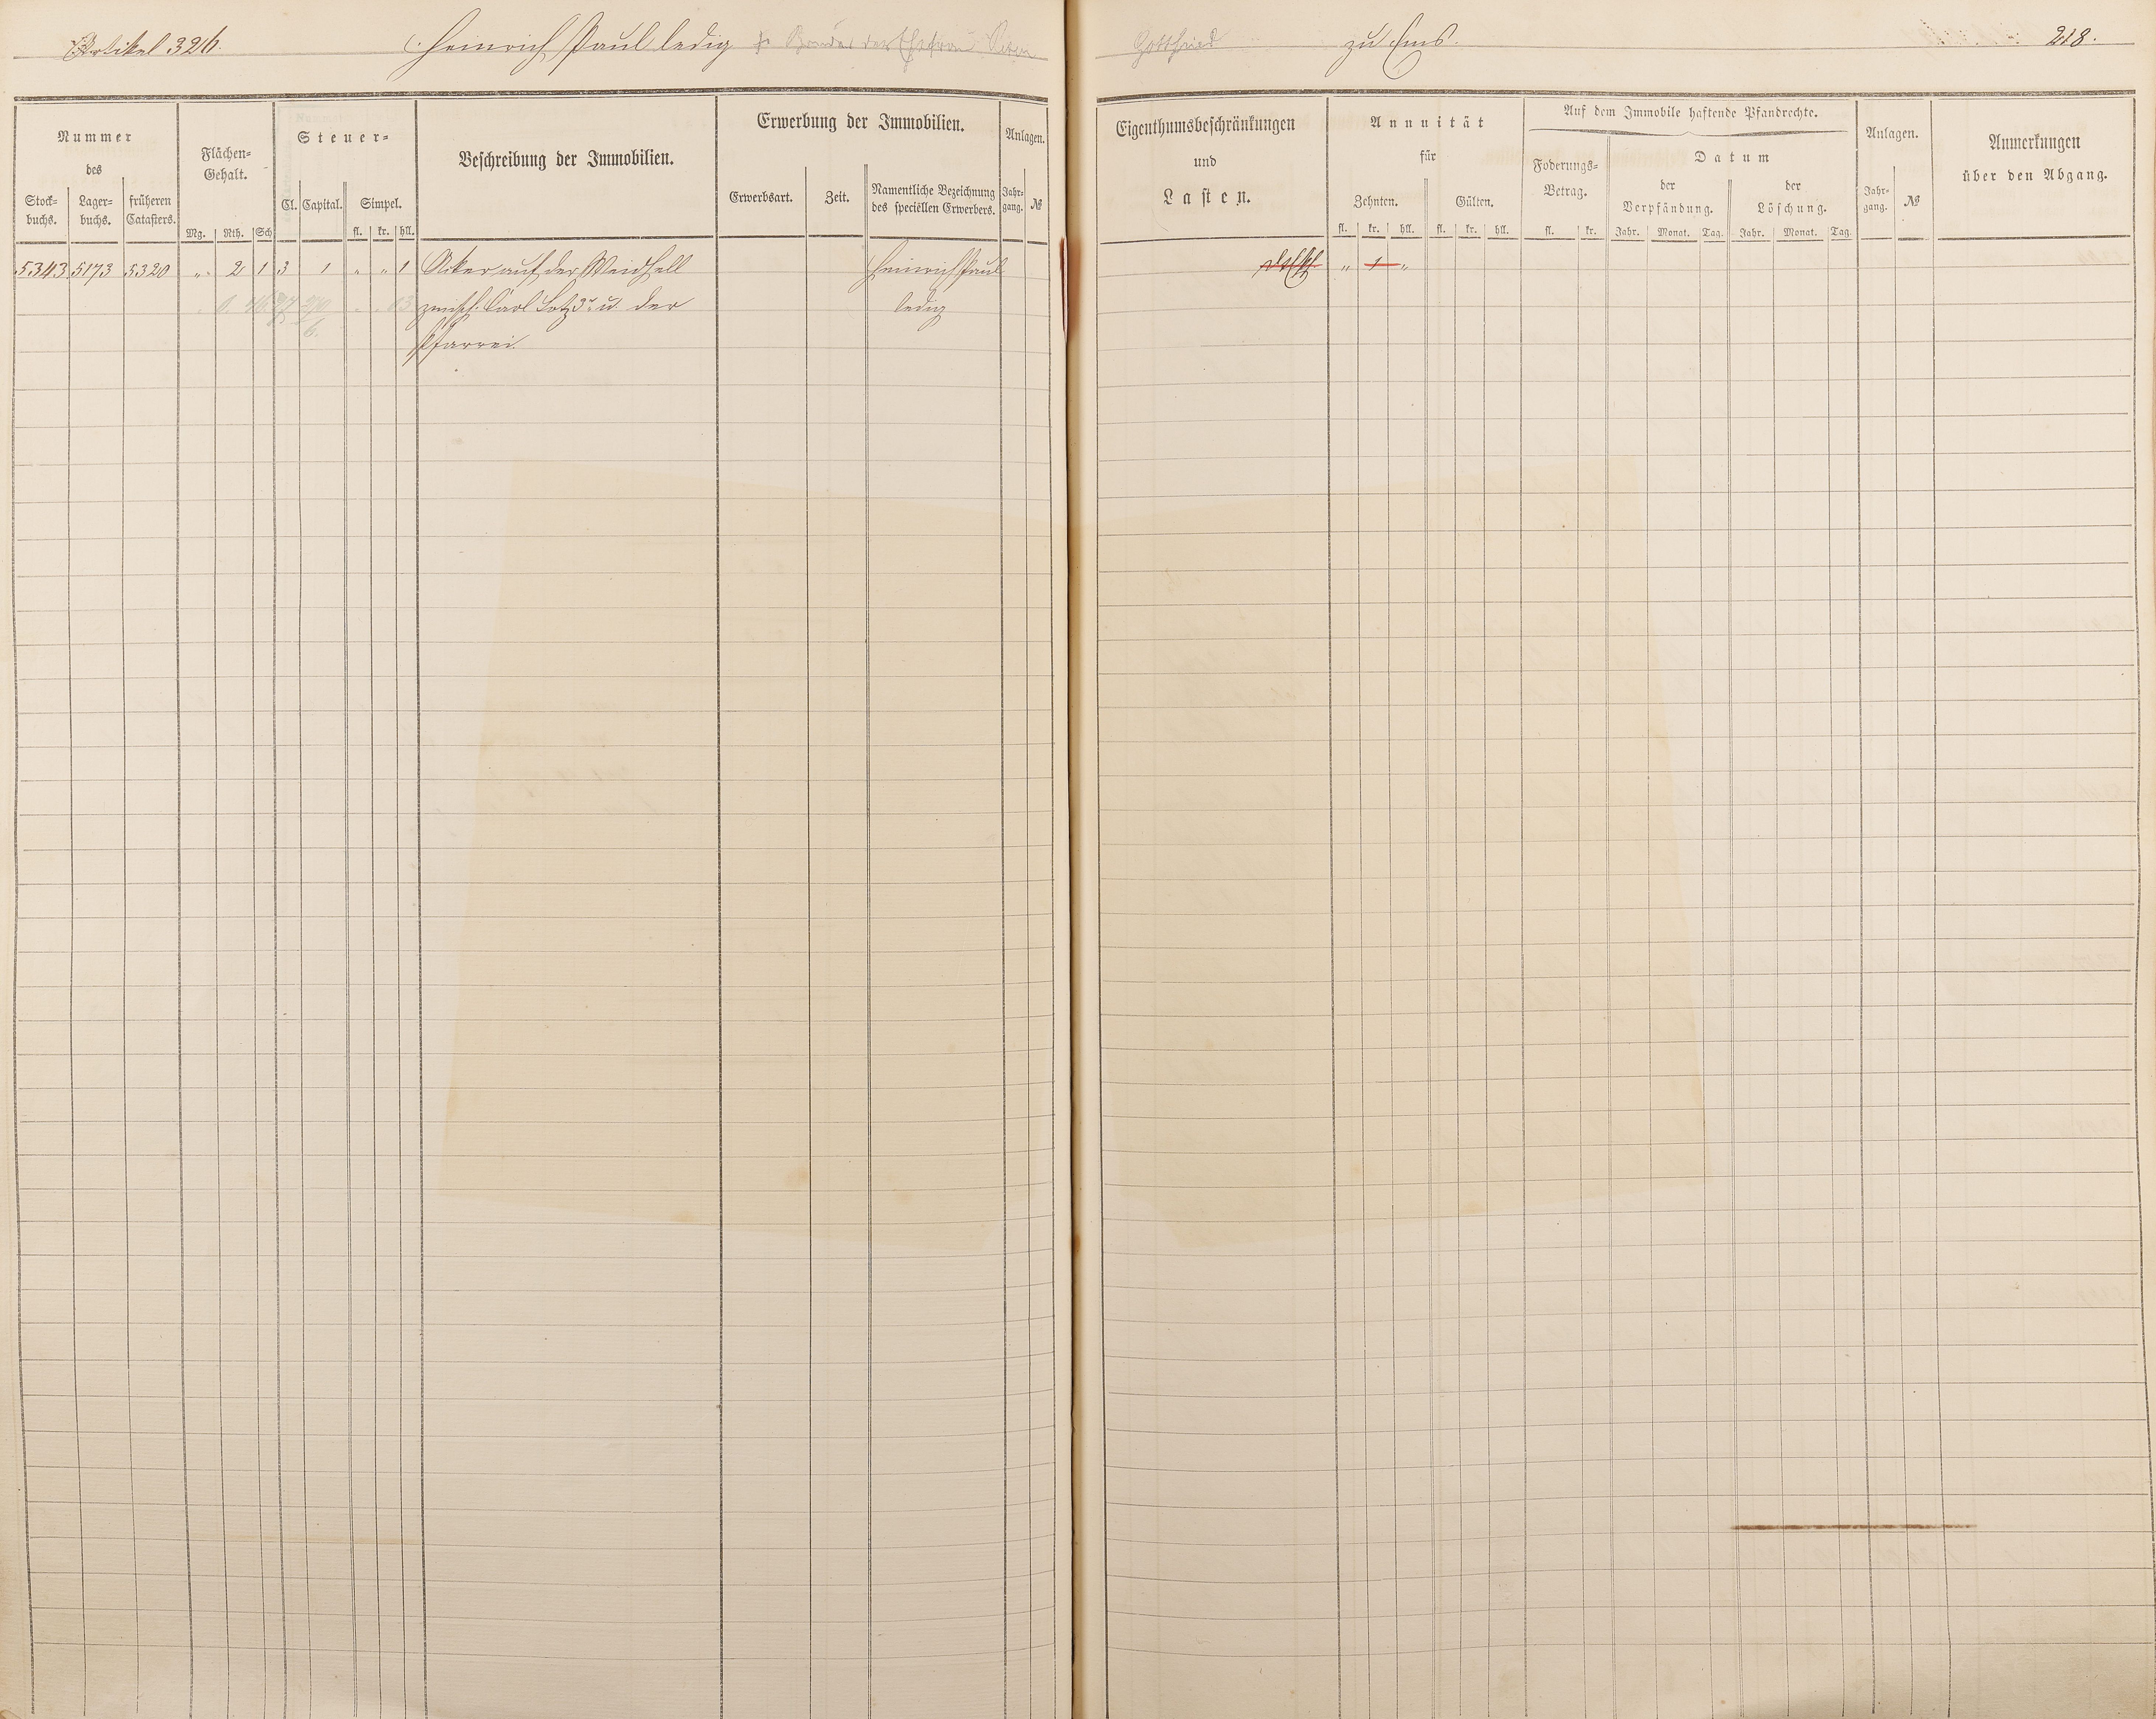 Artikel 326.
Heinrich Paul ledig
Gottfried
zu Ems.
218.
Nummer
des
Stock-
buchs.
Lager-
buchs.
früheren
Catasters.
Flächen-
Gehalt.
Mg. Rth. Sch
Steuer-
Cl. Capital. Simpel.
fl. kr. hll.
Beschreibung der Immobilien.
Erwerbung der Immobilien.
Erwerbsart. Zeit.
Namentliche Bezeichnung
des speciellen Erwerbers.
Anlagen.
Jahr-
gang. №
Eigenthumsbeschränkungen
und
Lasten.
Annuität
für
Zehnten. Gülten.
fl. kr. hll. fl. kr. hll.
Auf dem Immobile haftende Pfandrechte.
Foderungs-
Betrag.
fl. kr.
Datum
der
Verpfändung.
Jahr. Monat. Tag.
der
Löschung.
Jahr. Monat. Tag.
Anlagen.
Jahr-
gang. №
Anmerkungen
über den Abgang.
5343 5173 5320 „ 2 1 3 1 „ „ 1 Aker auf der Weidhell Heinrich Paul „ 1 „
zwisch. Carl Lotz 3r u. der ledig
Pfarrei.